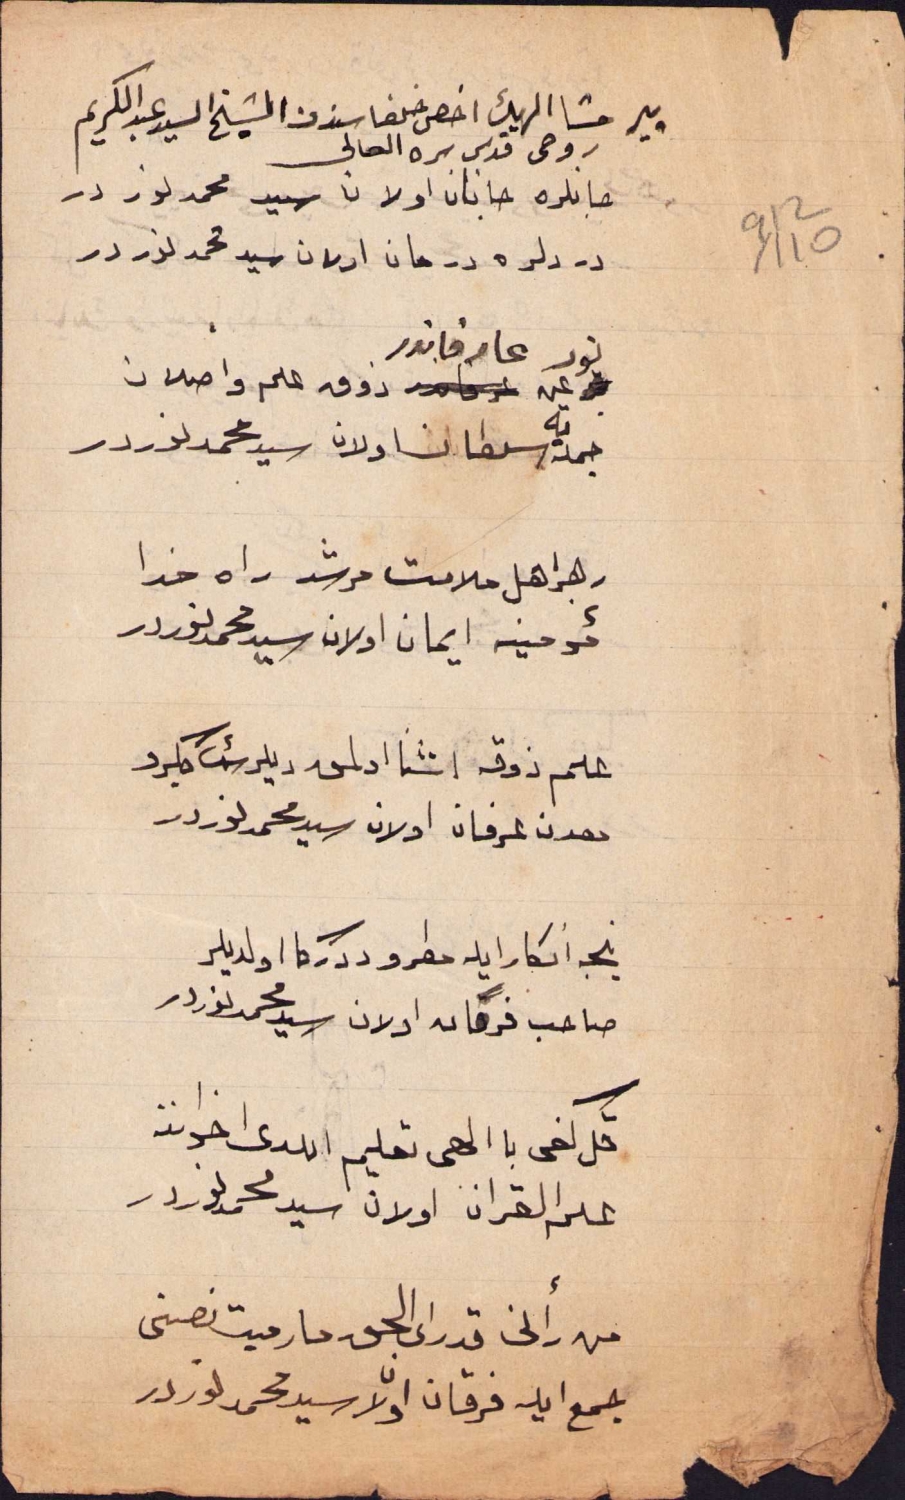 پیر مشا الیهك اخص خلفاسندن الشیخ السید عبد الكریم
روحی قدس سره العالی
جانلره جانان اولان سید محمد نور در
9/210
دردلره درمان اولان سید محمد نور در
نور عارفاندر
عین ذوق علم واصلان
جملە یە سلطان اولان سید محمد نور در
رهبر اهل ملامت مرشد راه خدا
مؤمینه ایمان اولان سید محمد نور در
علم ذوقه اشنا اولمق دیلرسڭ
معدن عرفان اولان سید محمد نور در
نیجه انكار ایله مطرود درگاه اولدیلر
صاحب فرقان اولان سید محمد نور در
قل كفی باالهی تعلیم ایلدی اخواننه
علم القران اولان سید محمد نور در
من رأنی قدرای الحق مارمیت نصنی
جمع ایله فرقان اولان سید محمد نور در